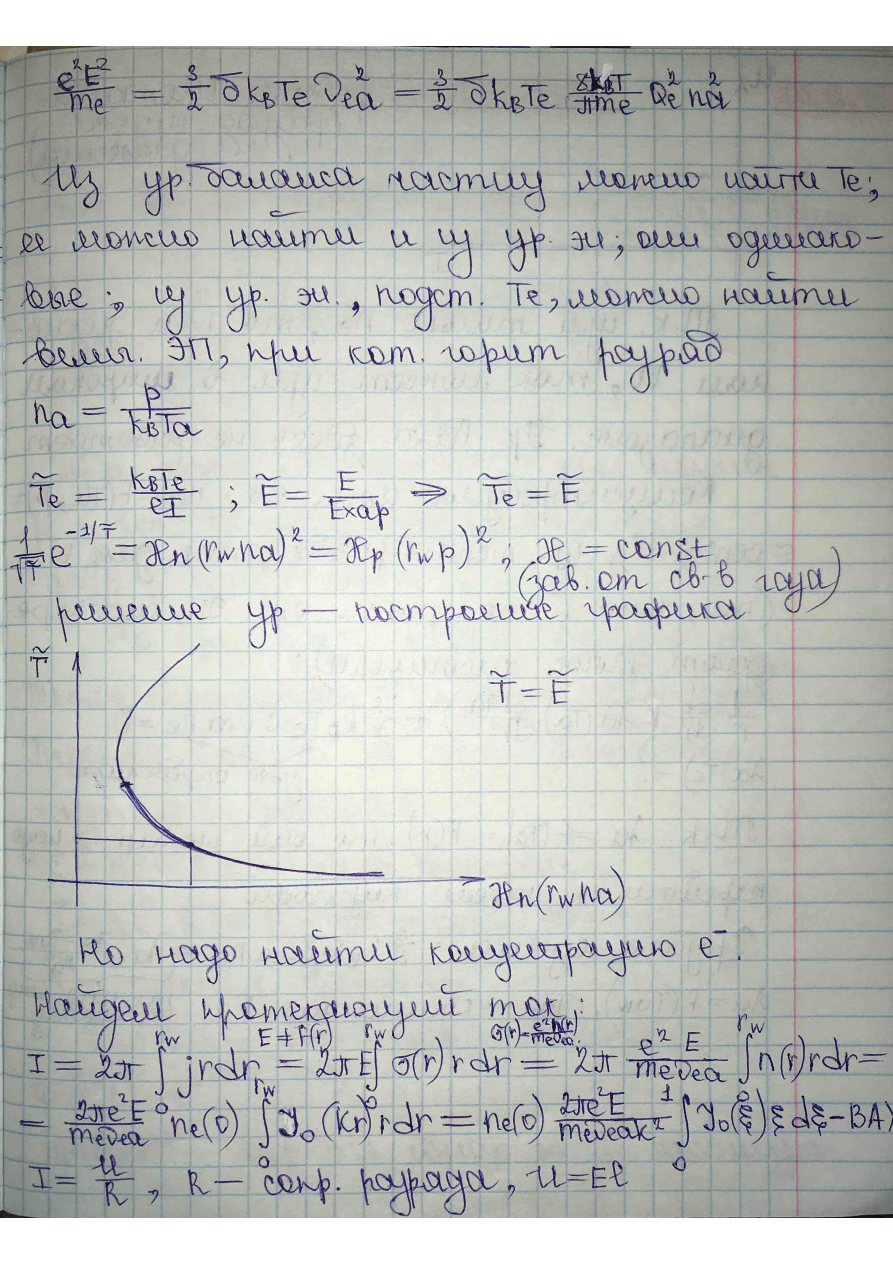 e²E²/me = 3/2 δkBTe νea² = 3/2 δkBTe 8kBT/πme Qe² na²
Из ур. баланса частиц можно найти Te;
ее можно найти и из ур. эн; они одинако-
вые; из ур. эн., подст. Te, можно найти
велич. ЭП, при кот. горит разряд
na = p/kBTa
T̃e = kBTe/eI ; Ẽ = E/Eхар ⇒ T̃e = Ẽ
1/√T̃ e^(-1/T̃) = ϰn(rwna)² = ϰp(rwp)² ; ϰ = const
(зав. от св-в газа)
решение ур — построение графика
T̃
T̃ = Ẽ
ϰn(rwna)
Но надо найти концентрацию e⁻.
Найдем протекающий ток:
E ≠ f(r) σ(r)=e²n(r)/meνea
I = 2π ∫₀^rw jrdr = 2πE ∫₀^rw σ(r)rdr = 2π e²E/meνea ∫₀^rw n(r)rdr =
= 2πe²E/meνea ne(0) ∫₀^rw J₀(kr)rdr = ne(0) 2πe²E/meνeak² ∫₀^1 J₀(ξ)ξdξ – ВАХ
I = U/R , R — сопр. разряда, U = El